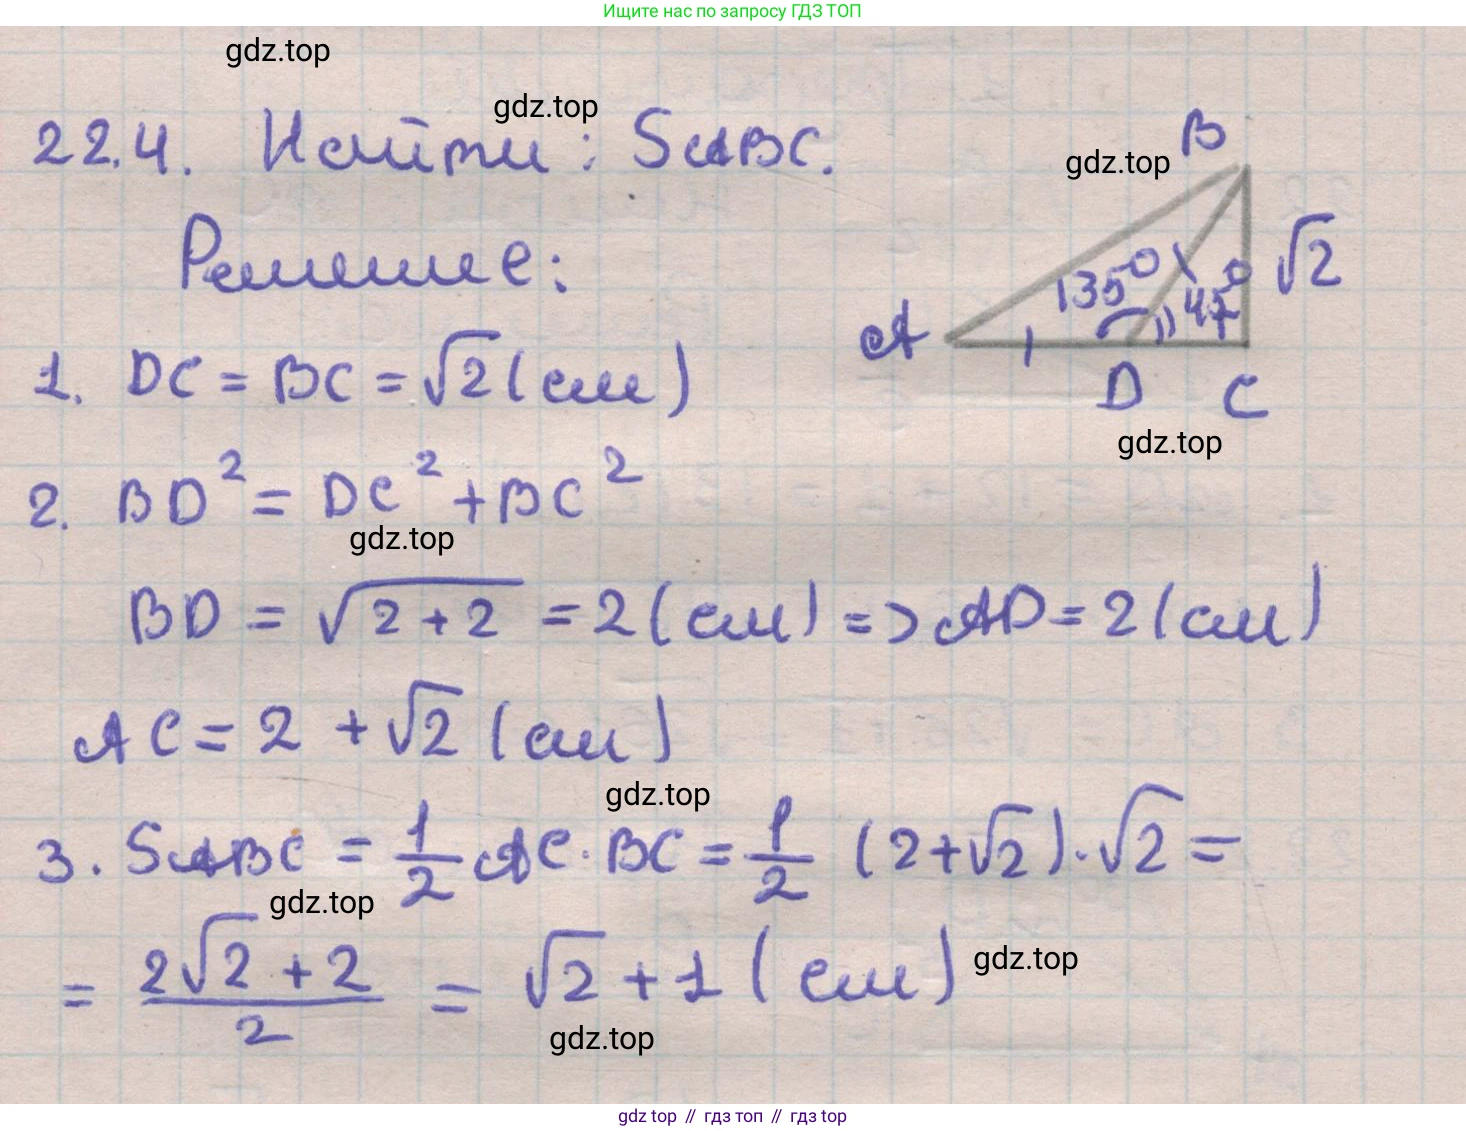 Ищите нас по запросу ГДЗ ТОП
gdz.top
gdz.top
22.4. Найти: SABC.
gdz.top
B
Решение:
135° 45° √2
A
1. DC = BC = √2 (см)
D C
gdz.top
2. BD² = DC² + BC²
gdz.top
BD = √2+2 = 2 (см) => AD = 2 (см)
AC = 2 + √2 (см)
gdz.top
3. SABC = 1/2 AC · BC = 1/2 (2+√2) · √2 =
gdz.top
= 2√2 + 2 / 2 = √2 + 1 (см)
gdz.top
gdz.top
gdz top // гдз топ // гдз top